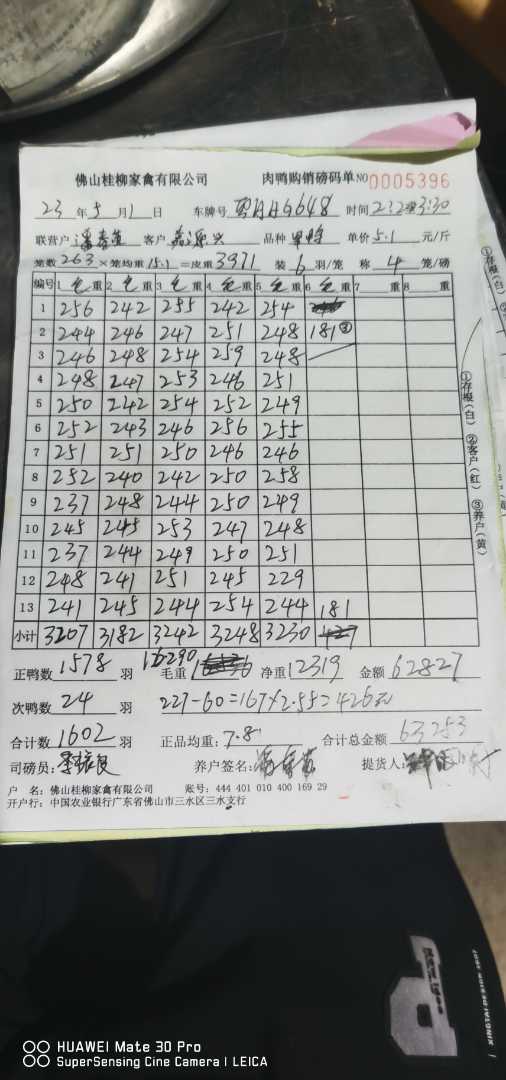 佛山桂柳家禽有限公司 肉鸭购销磅码单 NO 0005396
23 年 5 月 1 日 车牌号 粤AAG648 时间 2:12 3:30
联营户 客户 品种 单价 5.1 元/斤
笼数 263 × 笼均重 15.1 = 皮重 3971 装 6 羽/笼 称 4 笼/磅
编号 1 毛 重 2 毛 重 3 毛 重 4 毛 重 5 毛 重 6 毛 重 7 重 8 重
1 256 242 255 242 254
2 244 246 247 251 248 181③
3 246 248 254 259 248
4 248 247 253 246 251
5 250 242 254 252 249
6 252 243 246 256 255
7 251 251 250 246 246
8 252 240 242 250 258
9 237 248 244 250 249
10 245 245 253 247 248
11 237 244 249 250 251
12 248 241 251 245 229
13 241 245 244 254 244 181
小计 3207 3182 3242 3248 3230
正鸭数 1578 羽 毛重 16290 净重 12319 金额 62827
次鸭数 24 羽 227-60=167×2.55=426元
合计数 1602 羽 正品均重: 7.8 合计总金额 63253
司磅员: 养户签名: 提货人:
户 名: 佛山桂柳家禽有限公司 账号: 444 401 010 400 169 29
开户行: 中国农业银行广东省佛山市三水区三水支行
①存根(白) ②客户(红) ③养户(黄)
①存根(白)
XINGTAI DESIGN 2007
HUAWEI Mate 30 Pro
SuperSensing Cine Camera | LEICA